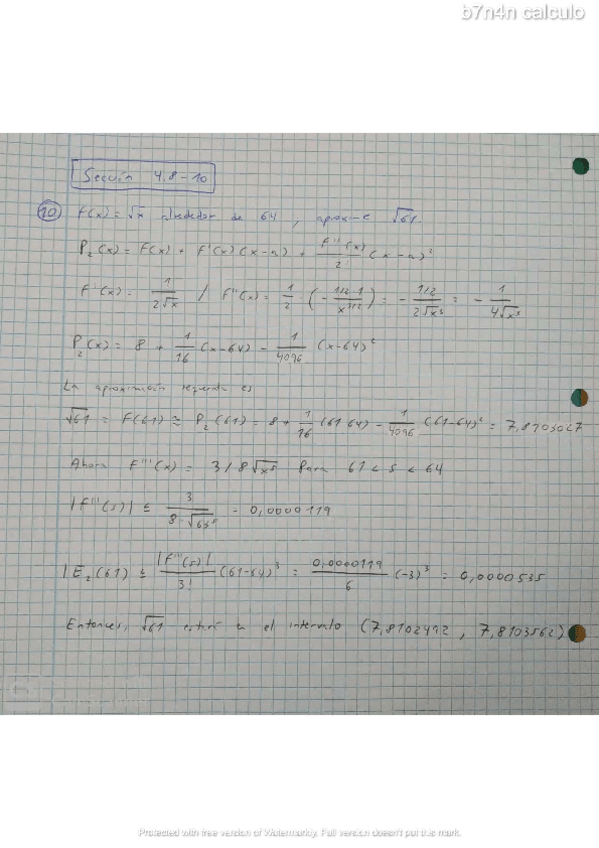 b7n4n calculo
Sección 4.8-10
10 F(x) = √x alrededor de 64, aproxime √61.
P₂(x) = F(x) + F'(x)(x-a) + F''(x)/2! (x-a)²
F'(x) = 1/(2√x) / F''(x) = 1/2 · (- 1/2·1/x^(3/2)) = - 1/2/(2√x³) = - 1/(4√x³)
P₂(x) = 8 + 1/16 (x-64) - 1/4096 (x-64)²
La aproximación requerida es
√61 = F(61) ≅ P₂(61) = 8 + 1/16 (61-64) - 1/4096 (61-64)² = 7,8103027
Ahora F'''(x) = 3/8√x⁵ Para 61 < s < 64
|F'''(s)| ≤ 3/(8·√61⁵) = 0,0000119
|E₂(61) ≤ |F'''(s)|/3! (61-64)³ = 0,0000119/6 (-3)³ = 0,0000535
Entonces, √61 en el intervalo (7,8102492, 7,8103562)
Protected with free version of Watermarkly. Full version doesn't put this mark.